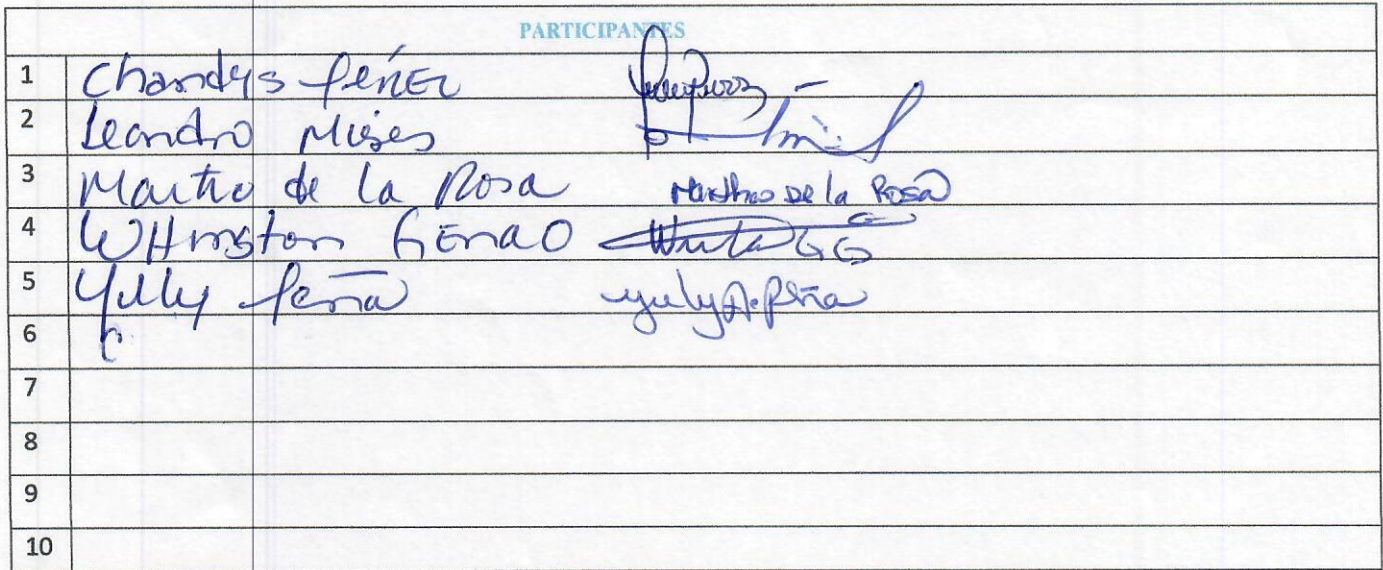 PARTICIPANTES
1 Chandys PÉREZ
2 Leandro Mises
3 Martho de la Rosa Marthas De la Rosa
4 WHinston GENAO
5 Yully Peña yuly A. Peña
6
7
8
9
10